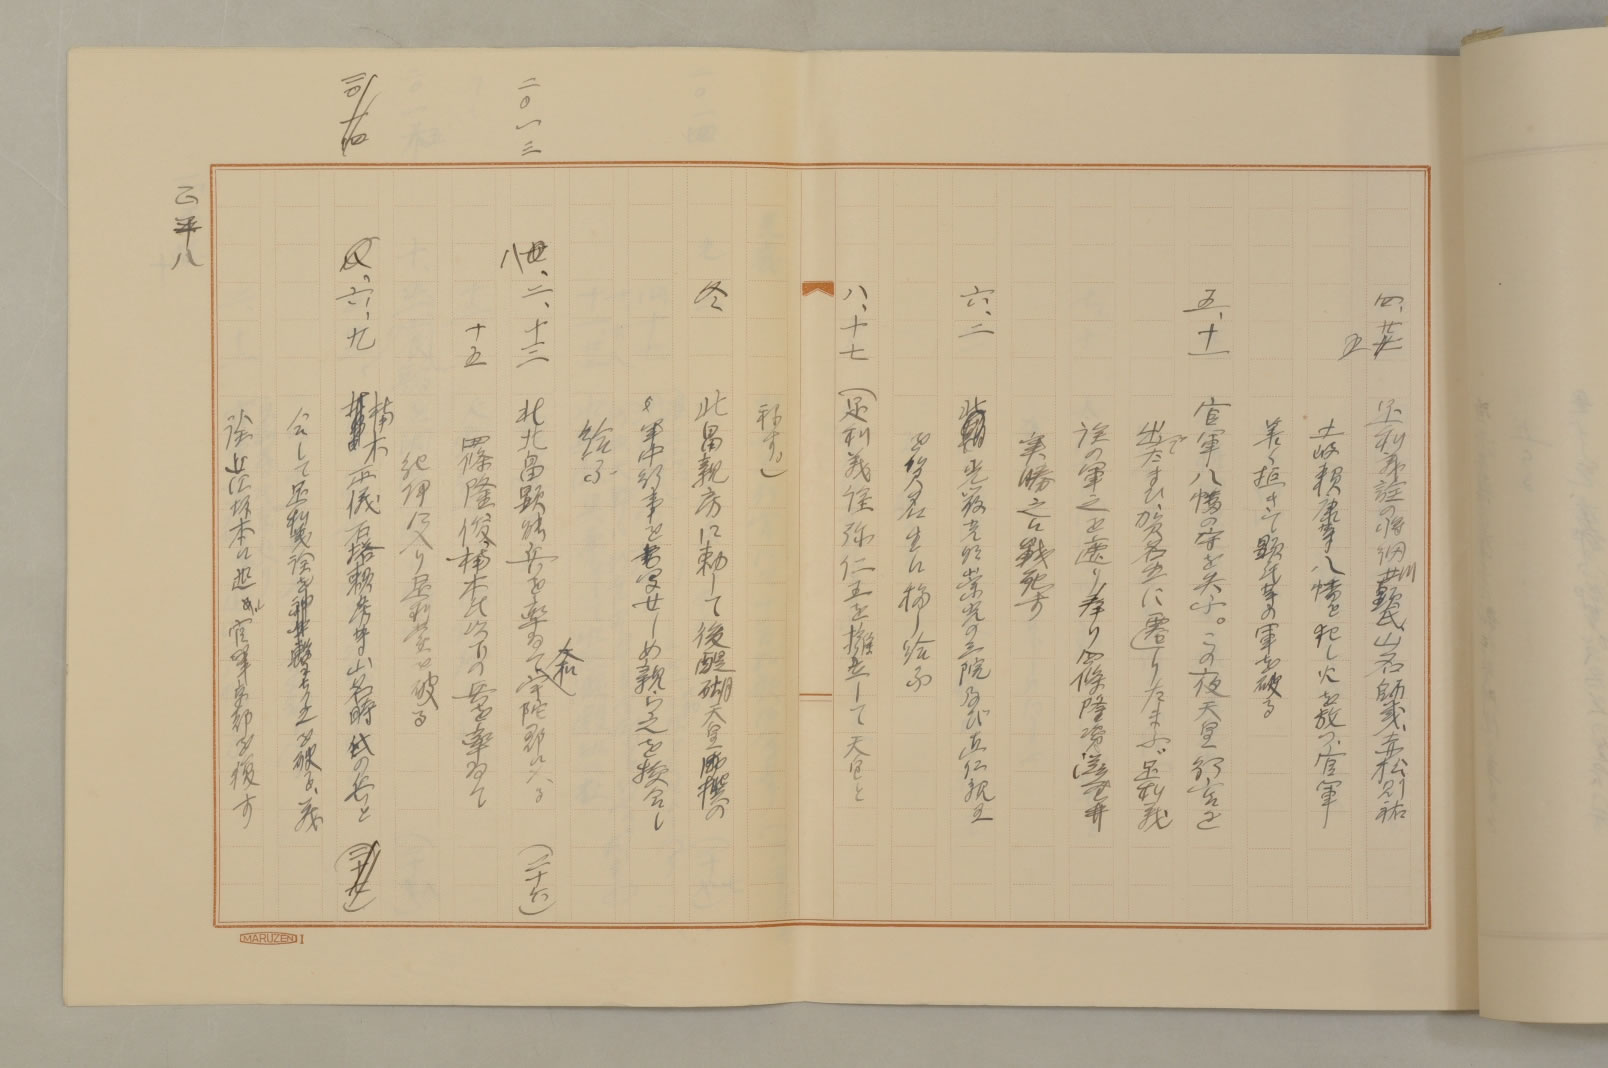 四、廿五 足利義詮の将細川顕氏、山名師義、赤松則祐
土岐頼康等八幡を犯し火を放つ、官軍
善く拒ぎて顕氏等の軍を破る
五、十一 官軍八幡の守を失ふ。この夜天皇行宮を
出でたまひ賀名生に還りたまふ、足利義
詮の軍之を遮り 四條隆資
実勝之に戦死す
六、二 光厳光明崇光の三院及び直仁親王
を賀名生に移し給ふ
八、十七 (足利義詮弥仁王を擁立して天皇と
称す。)
冬 北畠親房に勅して後醍醐天皇御撰の
年中行事を書写せしめ親ら之を校合し
給ふ
二〇一三 八、二、十三 北畠顕能兵を率ゐて大和宇陀郡に入る (二十六)
十五 四條隆俊、楠木氏以下の兵を率ゐて
紀伊に入り足利党を破る
六、九 楠木正儀石塔頼房等山名時氏の兵と
合して足利義詮を神 に破る、義
詮 坂本に 官軍京都を復す
正平八
MARUZEN I